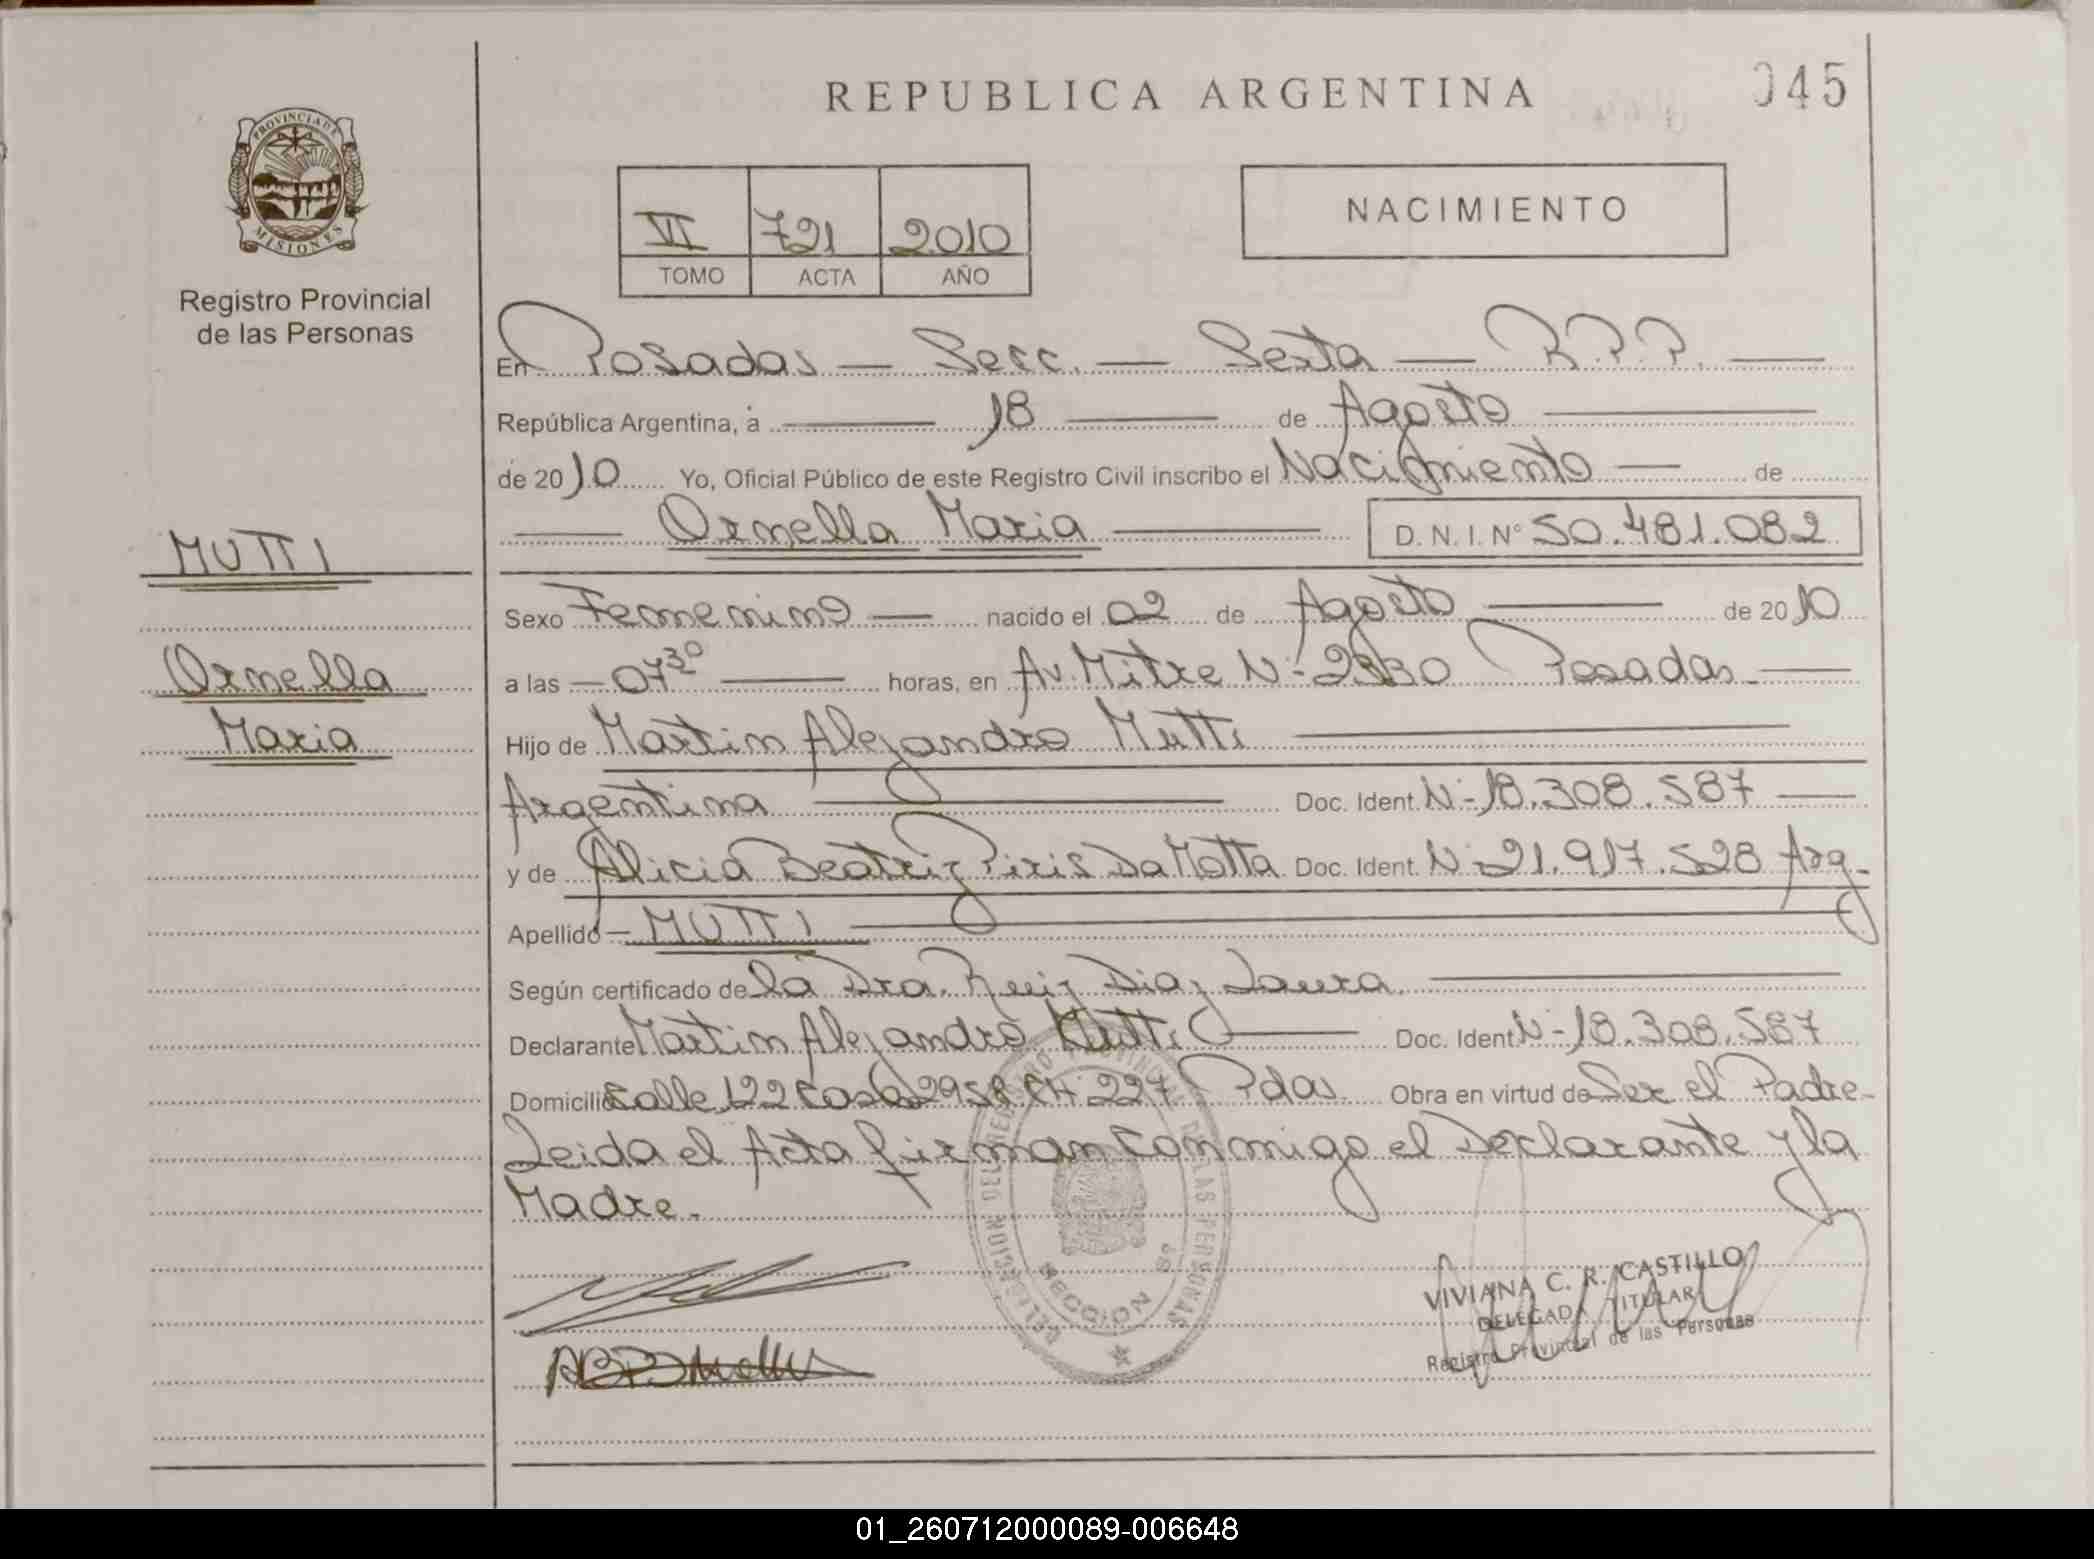 REPUBLICA ARGENTINA
045
PROVINCIA DE
MISIONES
Registro Provincial
de las Personas
VI 721 2010
TOMO ACTA AÑO
NACIMIENTO
En Posadas — Secc. — Sexta — R.P.P. —
República Argentina, a — 18 — de Agosto —
de 2010 Yo, Oficial Público de este Registro Civil inscribo el Nacimiento — de
— Ornella Maria — D.N.I. Nº 50.481.082
MUTTI
Ornella
Maria
Sexo Femenino — nacido el 02 de Agosto — de 2010
a las — 07 30 — horas, en Av. Mitre Nº Posadas —
Hijo de Martin Alejandro Mutti —
Argentina — Doc. Ident. Nº 18.308.587 —
y de Alicia Beatriz Piris Da Motta Doc. Ident. Nº 21.917.528 Arg.
Apellido — MUTTI —
Según certificado de la Dra. Ruiz Diaz Laura. —
Declarante Martin Alejandro Mutti — Doc. Ident Nº 18.308.587
Domicilio Calle 122 Casa CH 227 Pdas. Obra en virtud de Ser el Padre-
Leida el Acta firman conmigo el Declarante y la
Madre.
DELEGACION
DE LAS PERSONAS
SECCION
VIVIANA C. R. CASTILLO
DELEGADA TITULAR
Registro Provincial de las Personas
01_260712000089-006648